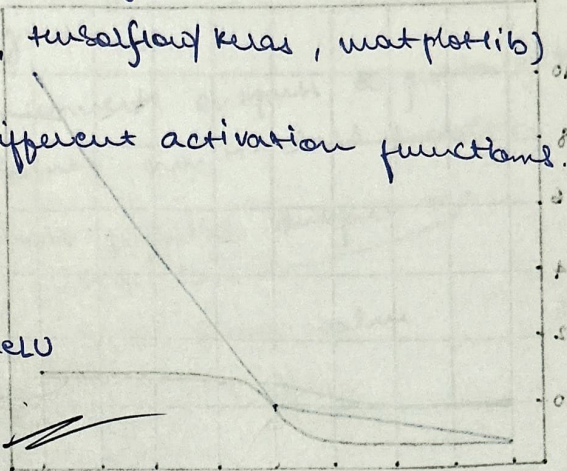 , tensorflow/keras, matplotlib)
ifferent activation functions.
eLU